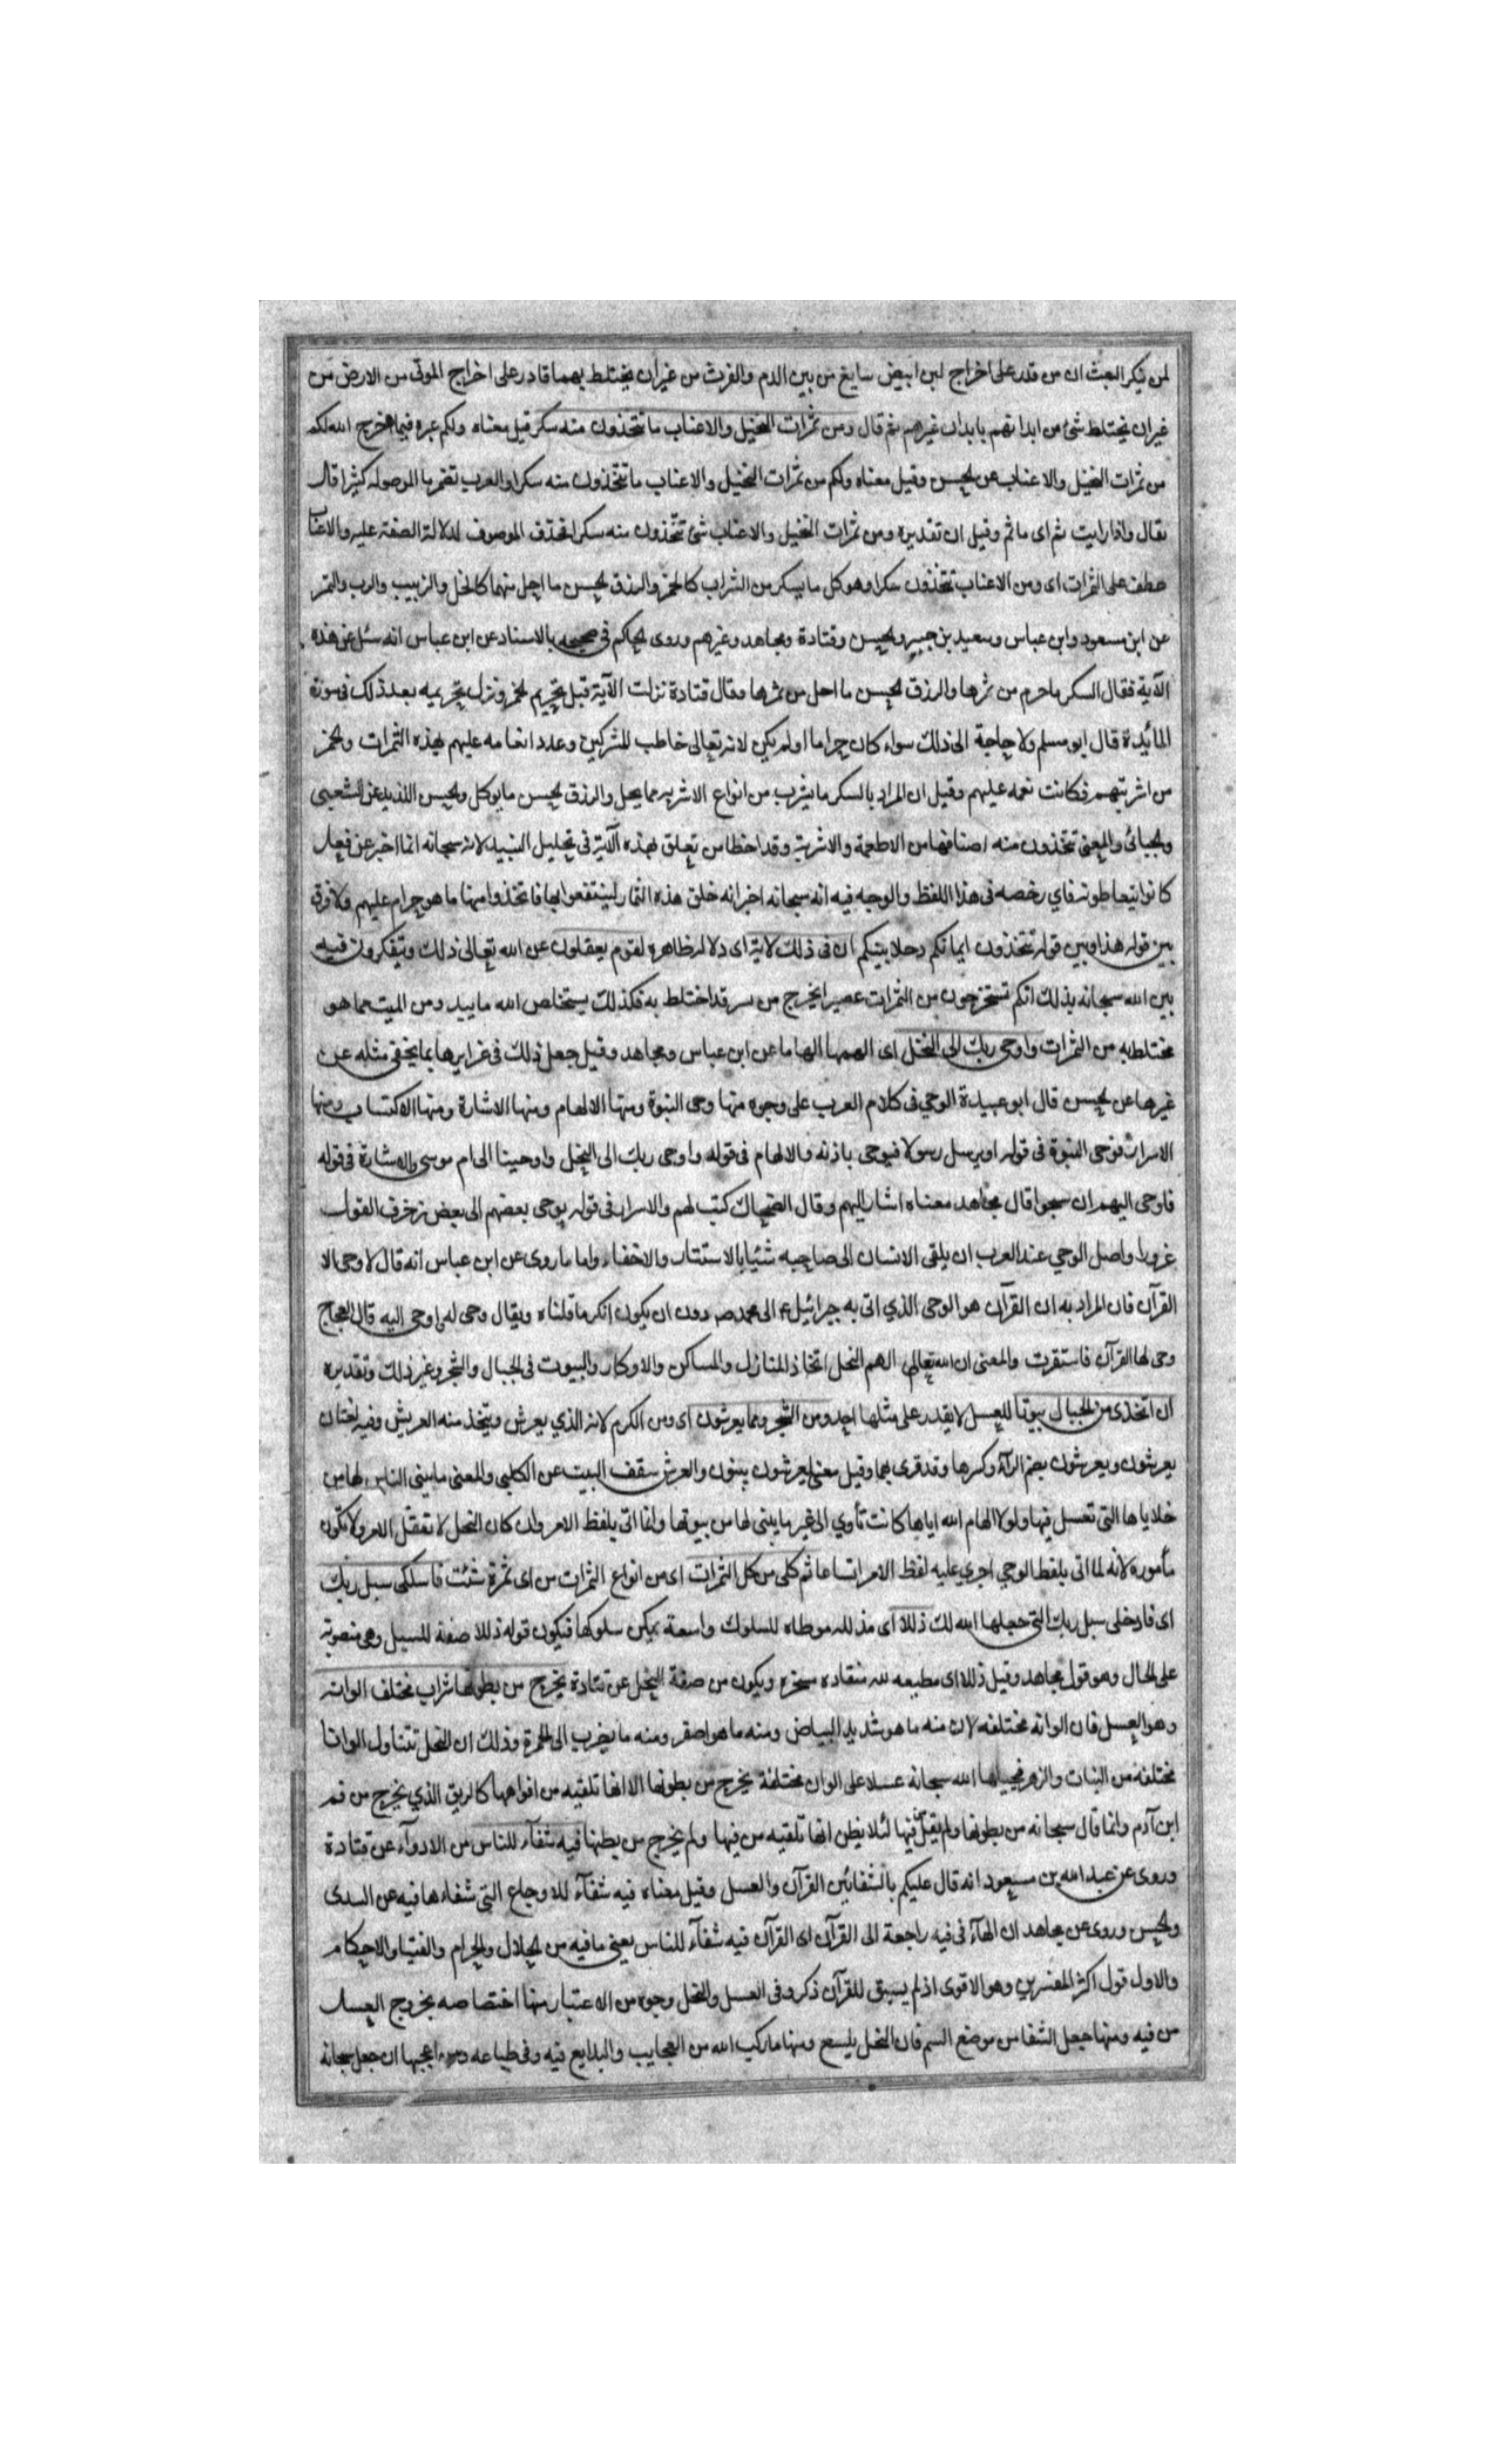 لمن ينكر البعث ان من قدر على اخراج لبن ابيض سايغ من بين الدم والفرث من غير ان يختلط بهما قادر على اخراج الموتى من الارض من
غير ان يختلط شئ من ابدانهم بابدان غيرهم ثم قال ومن ثمرات النخيل والاعناب ما تتخذون منه سكر قيل معناه ولكم عبرة فيما اخرج الله لكم
من ثمرات النخيل والاعناب عن الحسن وقيل معناه ولكم من ثمرات النخيل والاعناب ما تتخذون منه سكرا والعرب تضمر ما الموصوله كثيرا قال
تعالى واذا رايت ثم اى ما ثم وقيل ان تقديره ومن ثمرات النخيل والاعناب شئ تتخذون منه سكرا فحذف الموصوف لدلالة الصفة عليه والاعناب
عطف على الثمرات اى ومن الاعناب تتخذون سكرا وهو كل ما يسكر من الشراب كالخمر والرزق الحسن ما احل منهما كالخل والزبيب والرب والتمر
عن ابن مسعود وابن عباس وسعيد بن جبير والحسن وقتادة ومجاهد وغيرهم وروى الحاكم فى صحيحه بالاسناد عن ابن عباس انه سئل عن هذه
الآية فقال السكر ما حرم من ثمرها والرزق الحسن ما احل من ثمرها وقال قتادة نزلت الآية قبل تحريم الخمر ونزل تحريمه بعد ذلك فى سورة
المائدة قال ابو مسلم ولا حاجة الى ذلك سواء كان حراما او لم يكن لانه تعالى خاطب المشركين وعدد انعامه عليهم بهذه الثمرات والخمر
من اشربتهم فكانت نعمه عليهم وقيل ان المراد بالسكر ما يشرب من انواع الاشربه مما يحل والرزق الحسن ما يوكل والحسن اللذيذ عن الشعبى
والجبائى والمعنى تتخذون منه اصنافها من الاطعمة والاشربة وقد اخطا من تعلق بهذه الآية فى تحليل النبيذ لانه سبحانه انما اخبر عن فعل
كانوا يتعاطونه فاي رخصه فى هذا اللفظ والوجه فيه انه سبحانه اخبر انه خلق هذه الثمار لينتفعوا بها فاتخذوا منها ما هو حرام عليهم ولا فرق
بين قوله هذا وبين قوله تتخذون ايمانكم دخلا بينكم ان فى ذلك لآية اى دلالة ظاهره لقوم يعقلون عن الله تعالى ذلك ويتفكرون فيه
بين الله سبحانه بذلك انكم تستخرجون من الثمرات عصيرا يخرج من قد اختلط به فكذلك يستخلص الله ما يبيد ومن الميت مما هو
مختلط به من الثمرات واوحى ربك الى النحل اى الهمها الهاما عن ابن عباس ومجاهد وقيل جعل ذلك فى غرايزها بما يخفى مثله عن
غيرها عن الحسن قال ابو عبيدة الوحي فى كلام العرب على وجوه منها وحى النبوة ومنها الالهام ومنها الاشارة ومنها الاكتساب ومنها
الاسرار فوحى النبوة فى قوله او يرسل رسولا فيوحى باذنه والالهام فى قوله واوحى ربك الى النحل واوحينا الى ام موسى والاشارة فى قوله
فاوحى اليهم ان سبحوا قال مجاهد معناه اشار اليهم وقال الضحاك كتب لهم والاسرار فى قوله يوحى بعضهم الى بعض زخرف القول
غرورا واصل الوحي عند العرب ان يلقى الانسان الى صاحبه شئيا بالاستتار والاخفاء واما ما روى عن ابن عباس انه قال لا وحى الا
القرآن فان المراد به ان القرآن هو الوحى الذي اتى به جبرائيل ع الى محمد ص دون ان يكون انكر ما قلناه ويقال وحى له واوحى اليه قال العجاج
وحى لها القرآن فاستقرت والمعنى ان الله تعالى الهم النحل اتخاذ المنازل والمساكن والاوكار والبيوت فى الجبال والشجر وغير ذلك وتقديره
ان اتخذى من الجبال بيوتا للعسل لا يقدر على مثلها احد ومن الشجر ومما يعرشون اى ومن الكرم لانه الذي يعرش ويتخذ منه العريش وفيه لغتان
يعرشون ويعرشون بضم الرآء وكسرها وقد قرى بهما وقيل معنى يعرشون يبنون والعرش سقف البيت عن الكلبي والمعنى ما يبنى الناس لها من
خلاياها التى تعسل فيها ولولا الهام الله اياها كانت تأوي الى غير ما يبنى لها من بيوتها وانما اتى بلفظ الامر وان كان النحل لا تعقل الامر ولا تكون
مأموره لانه لما اتى بلفظ الوحي اجري عليه لفظ الامر اتساعا ثم كلى من كل الثمرات اى من انواع الثمرات من اى ثمرة شئت فاسلكى سبل ربك
اى فادخلى سبل ربك التى جعلها الله لك ذللا اى مذلله موطاه للسلوك واسعة يمكن سلوكها فيكون قوله ذللا صفة للسبل وهى منصوبة
على الحال وهو قول مجاهد وقيل ذللا اى مطيعه لله منقاده مسخره ويكون من صفة النحل عن قتادة يخرج من بطونها شراب مختلف الوانه
وهو العسل فان الوانه مختلفه لان منه ما هو شديد البياض ومنه ما هو اصفر ومنه ما يضرب الى الحمرة وذلك ان النحل تتناول الوانا
مختلفة من النبات والزهر فيجعلها الله سبحانه عسلا على الوان مختلفة يخرج من بطونها الا انها تلقيه من افواهها كالريق الذي يخرج من فم
ابن آدم وانما قال سبحانه من بطونها ولم يقل من فيها لئلا يظن انها تلقيه من فيها ولم يخرج من بطنها فيه شفآء للناس من الادوآء عن قتادة
وروى عن عبد الله بن مسعود انه قال عليكم بالشفائين القرآن والعسل وقيل معناه فيه شفآء للاوجاع التى شفاءها فيه عن السدى
والحسن وروى عن مجاهد ان الهآء فى فيه راجعة الى القرآن اى القرآن فيه شفآء للناس يعنى ما فيه من الحلال والحرام والفتيا والاحكام
والاول قول اكثر المفسرين وهو الاقوى اذ لم يسبق للقرآن ذكر وفى العسل والنحل وجوه من الاعتبار منها اختصاصه بخروج العسل
من فيه ومنها جعل الشفا من موضع السم فان النحل يلسع ومنها ما ركب الله من العجايب والبدايع فيه وفى طباعه ومن اعجبها ان جعل سبحانه